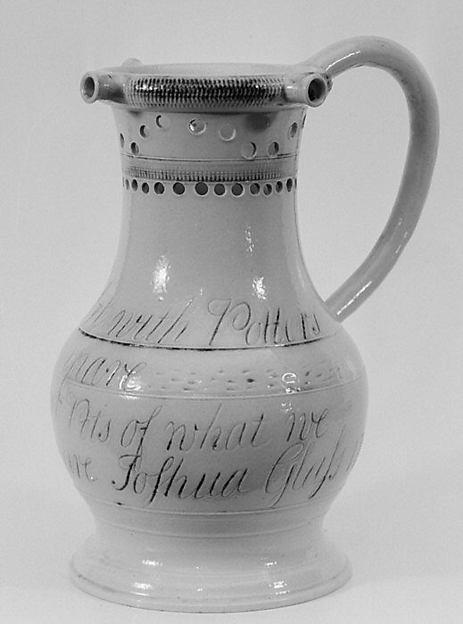 with Potters
pare
Pots of what we
Joſhua Glaſs